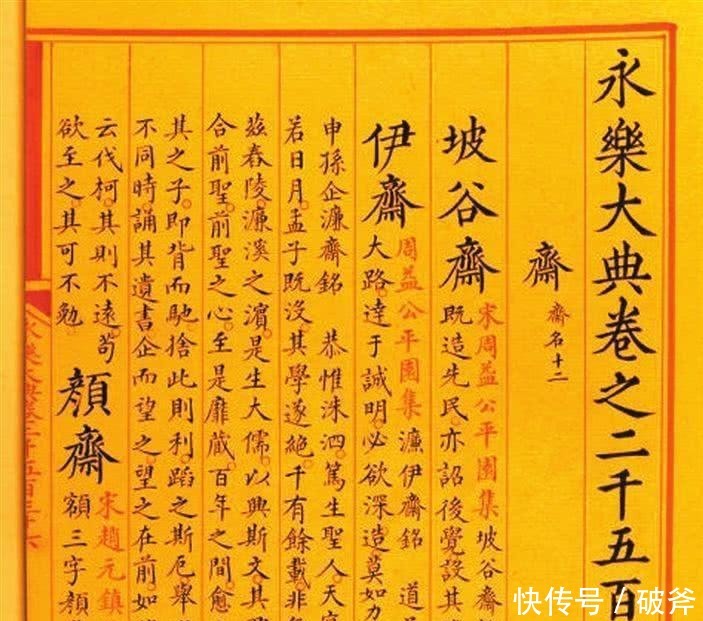 永樂大典卷之二千五百
齋 齋名十二
坡谷齋 宋周益公平園集坡谷齋
既造先民亦詔後覺設其
伊齋 周益公平園集 濂伊齋銘 道
大路達于誠明必欲深造莫如力
申孫企濂齋銘 恭惟洙泗篤生聖人天
若日月孟子既沒其學遂絕千有餘載非
茲舂陵濂溪之濱是生大儒以興斯文其
合前聖前聖之心至是靡蔵百年之間愈
其之子即背而馳捨此則利蹈之斯厄舉
不同時誦其遺書企而望之望之在前如
云伐柯其則不遠苟
欲至之其可不勉
顏齋 宋趙元鎮
額三字顏
永樂大典卷二千五百三十六
快传号/破斧